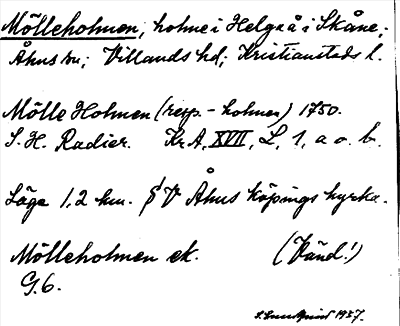 Mölleholmen, holme i Helgeå i Skåne;
Åhus sn; Villands hd; Kristianstads l.
Mölle Holmen (resp. - holmen) 1750.
S. H. Radier. Kr.A, XVII, L, 1, a o. b.
Läge 1,2 km. V Åhus köpings kyrka.
Mölleholmen ek. (Vänd!)
G.6.
1937.